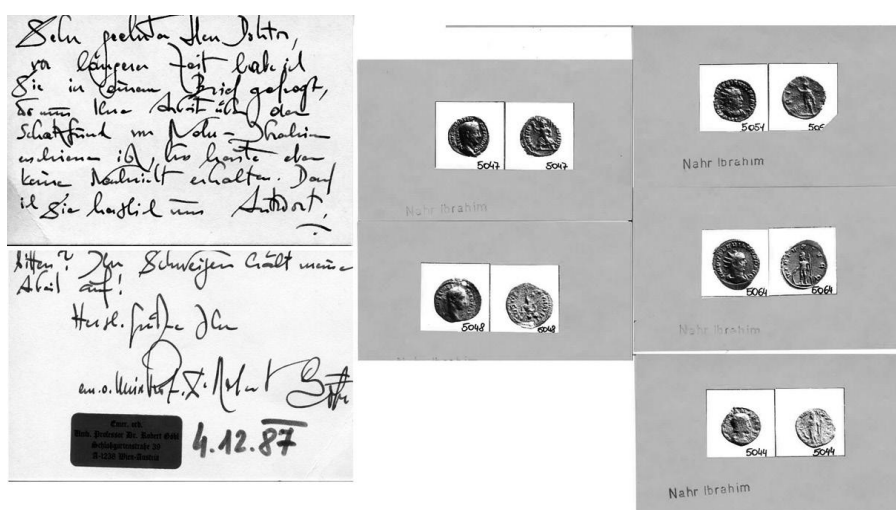 Sehr geehrter Herr Doktor,
vor längerer Zeit habe ich
Sie in einem Brief gefragt,
ob nun Ihre Arbeit über den
Schatzfund von Nahr-Ibrahim
erschienen ist, bis heute aber
keine Nachricht erhalten. Darf
ich Sie herzlich um Antwort
bitten? Ihr Schweigen hält meine
Arbeit auf!
Herzl. Grüße Ihr
em. o. Univ. Prof. Dr. Robert Göbl
Emer. ord.
Univ. Professor Dr. Robert Göbl
A-1238 Wien-Austria
4.12.87
5047 5047
Nahr Ibrahim
5048 5048
Nahr Ibrahim
5051
Nahr Ibrahim
5064 5064
Nahr Ibrahim
5044 5044
Nahr Ibrahim